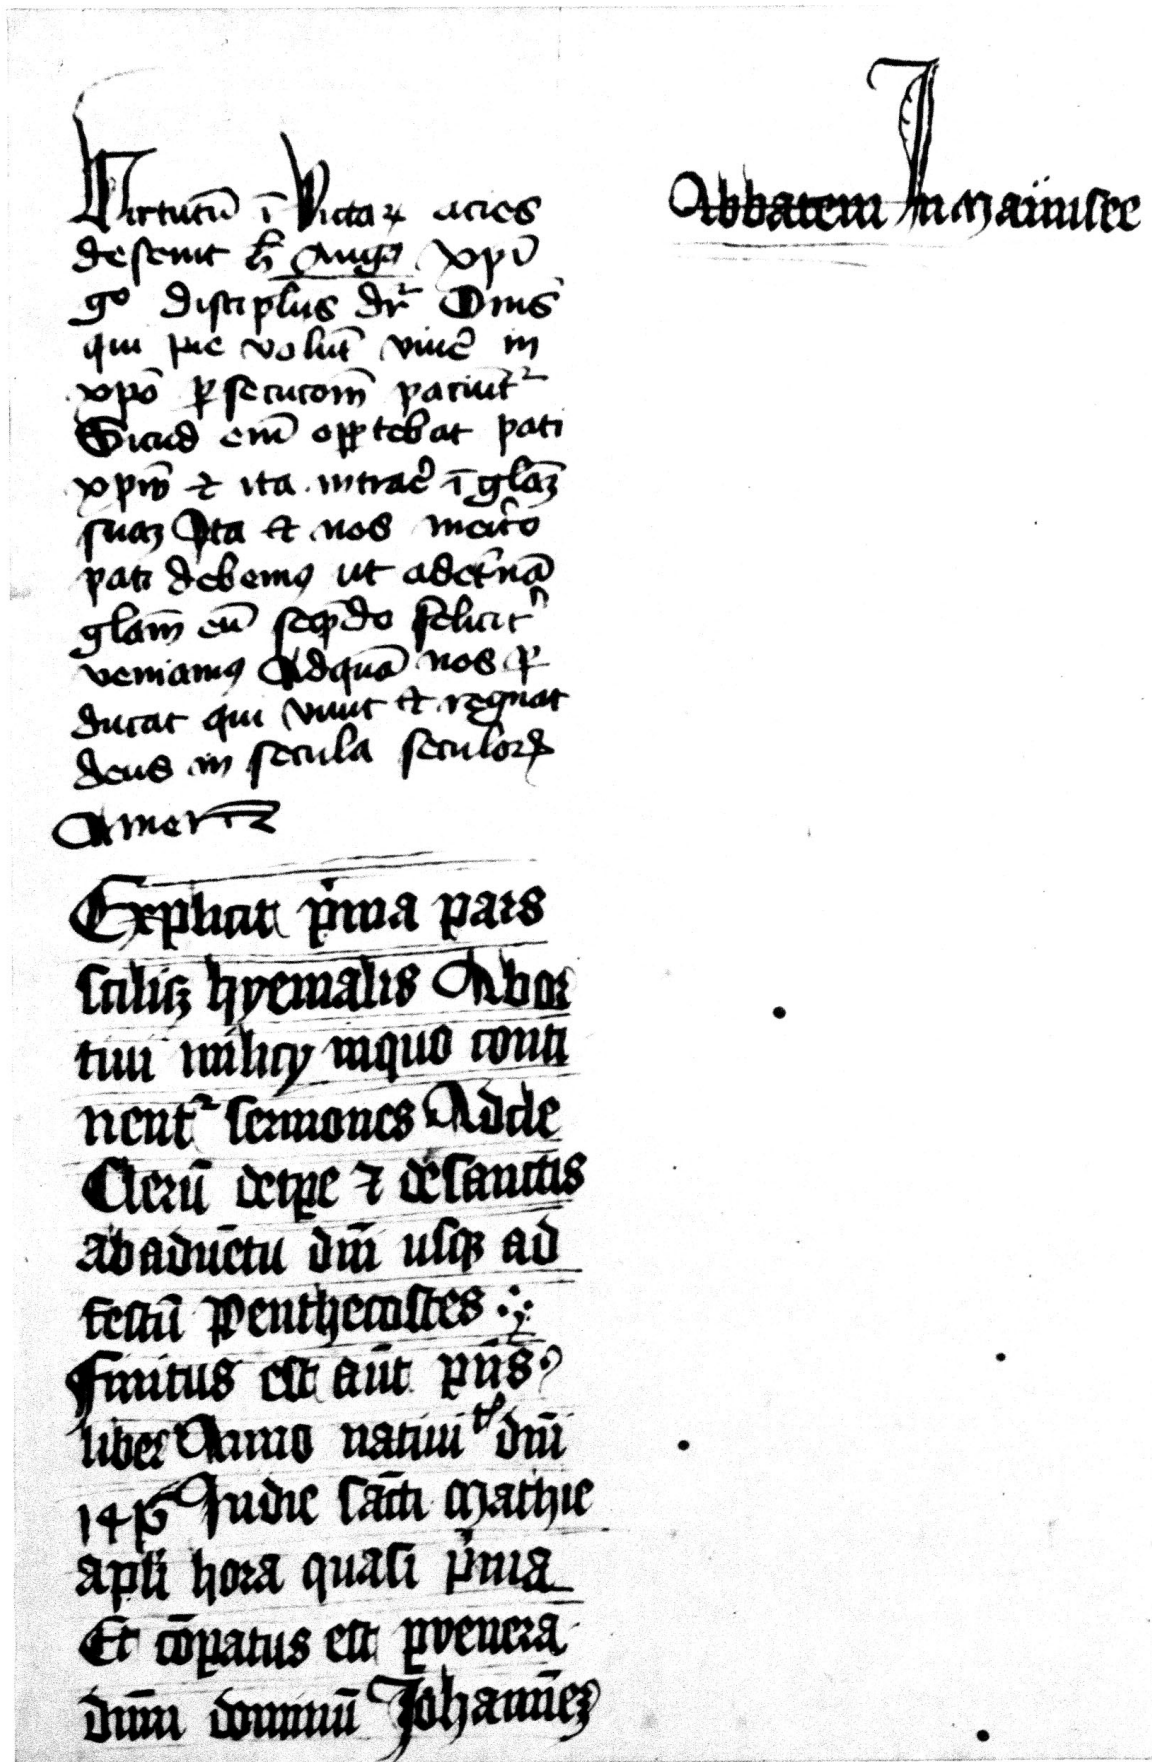 Virtutū ī Victaꝝ acies
desenit h̄ Augꝯ xpī
gᵒ discipl̄us dr̄ Om̄s
qui pie volūt viuē in
xpō ꝑsecutōm paciūt᷑
Sicud em̄ oꝑtebat pati
xpm̄ ⁊ ita intraē ī gl̄aꝫ
suaꝫ Ita et nos merito
pati debemꝰ ut adet̄nā
gl̄am eū seq̄ndo felicit᷑
veniamꝰ Adquā nos ꝑ
ducat qui viuit et regnat
deus in secula seculoꝝ
Amen
Explicit pͥma pars
scilicꝫ hyemalis Abor
tiui milicy inquo conti
nent᷑ sermones Adcle
Clerū detꝑe ⁊ desanctis
abaduētu dn̄i usqꝫ ad
festū Penthecostes
Finitus est aūt pn̄s
liber Anno natiuiᵗ dn̄i
Indie sācti Mathie
apl̄i hora quasi pͥma
Et cōꝑatus est ꝑvenera
dum dominū Johannēꝫ
Abbatem In